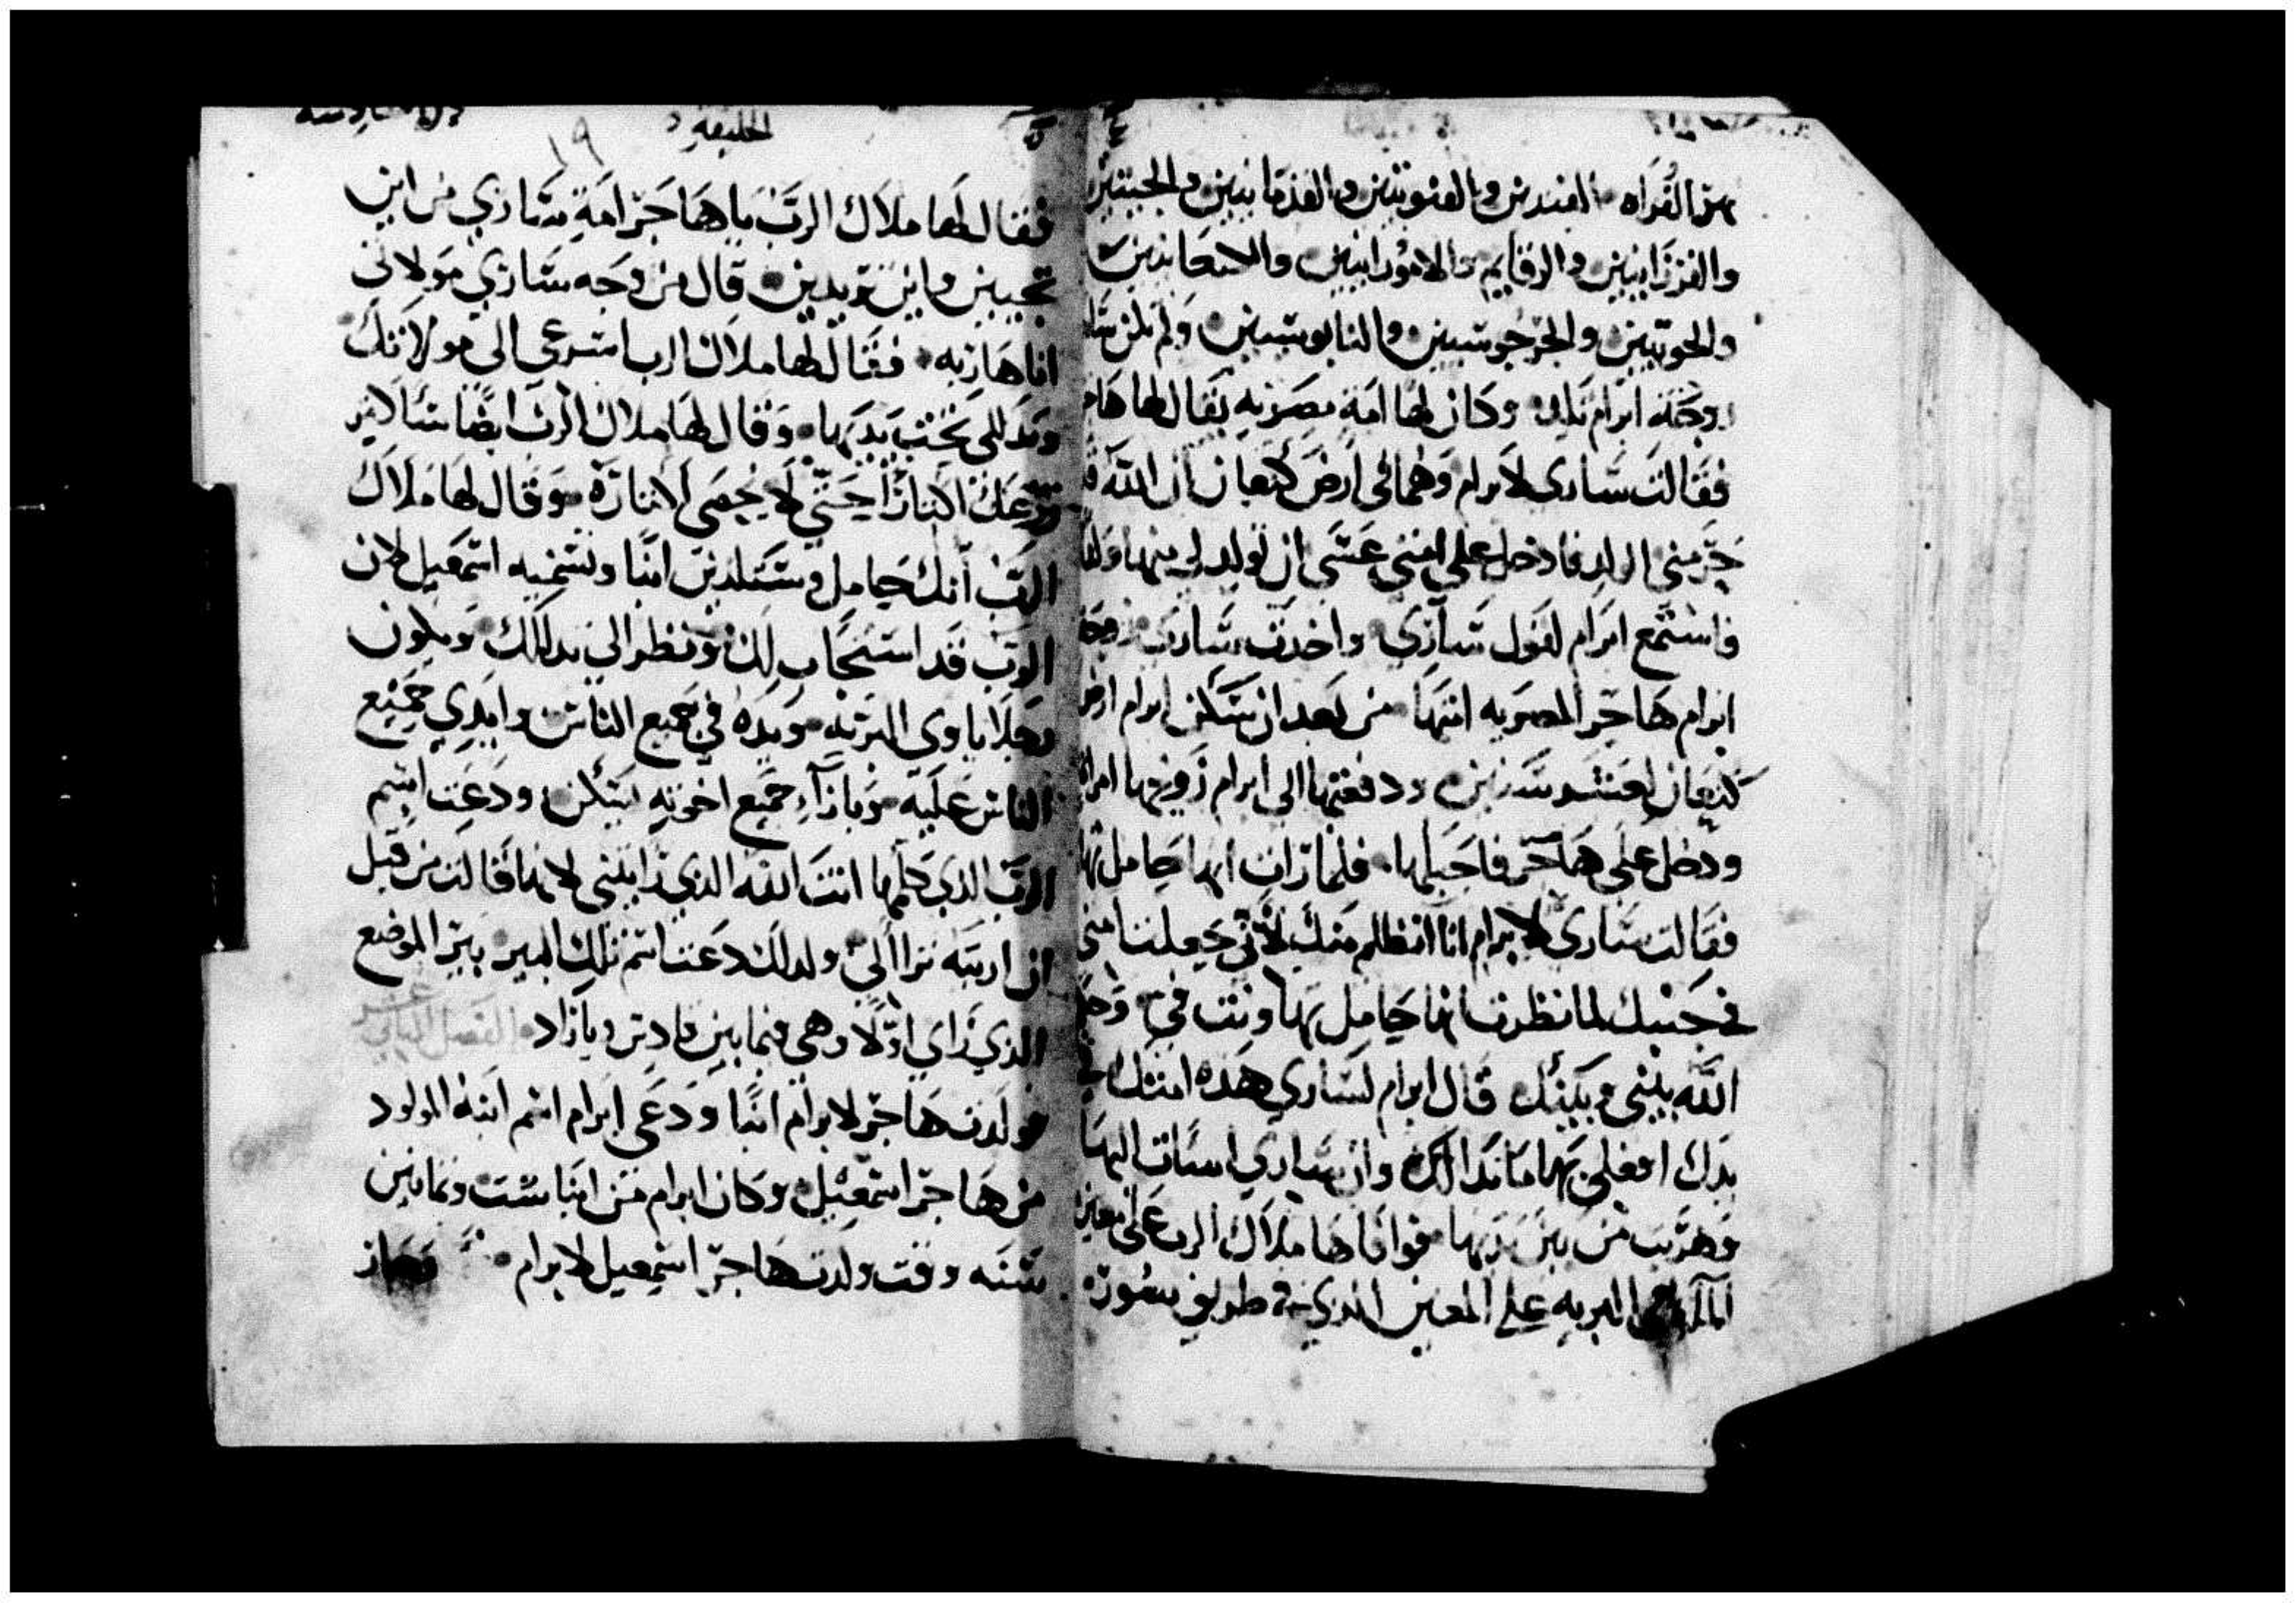 نهر الفراه القيدس والقنوبيين والقذمانيين والحيتيين
والفرزانيين والرفايم والاموراسين والكنعانيين
والحويين والجرجوسيين واليابوسيين ولم تلن ساري
زوجة ابرام تلد وكان لها امة مصريه يقال لها هاجر
فقالت ساري لابرام وهما في ارض كنعان ان الله قد
حرمني الولد فادخل على امتي عسى ان تولد لي منها ولد
فاستمع ابرام لقول ساري واخذت ساري زوجة
ابرام هاجر المصريه امتها من بعد ان سكن ابرام ارض
كنعان لعشر سنين ودفعتها الى ابرام زوجها امراة
ودخل على هاجر فاحبلها فلما رات انها حامل تها
فقالت ساري لابرام انا اتظلم منك لاني جعلت امتي
في حبيبك لما نظرت انها حامل تهاونت في وحكم
الله بيني وبينك قال ابرام لساري هذه امتك في
يدك افعلي بها ما بدا لك وان ساري اسات اليها
وهربت من بين يديها فوافاها ملاك الرب على معين
الماء في البريه على المعين الذي في طريق سور
الخليقه
١٩
فقال لها ملاك الرب يا هاجر امة ساري من اين
تجيين واين تريدين قال من وجه ساري مولاتي
انا هاربه فقال لها ملاك الرب اسرعي الى مولاتك
وتدللي تحت يديها وقال لها ملاك الرب ايضا سالاتير
زرعك اكثارا حتى لا يحصى لاكثاره وقال لها ملاك
الرب انك حامل وستلدين ابنا وتسميه اسمعيل لان
الرب قد استجاب لك ونظر الى تدللك ويكون
رجلا ياوي البريه ويده في جميع الناس وايدي جميع
الناس عليه وبازآء جميع اخوته يسكن ودعت اسم
الرب الذي كلمها انت الله الذي رايتني لانها قالت من قبل
ان اريته تراا لي ولذلك دعت اسم تلك البير بير الموضع
الذي راي اولا وهي فيما بين قادس وباراد الفصل الثاني عشر
فولدت هاجر لابرام ابنا ودعى ابرام اسم ابنه المولود
من هاجر اسمعيل وكان ابرام من ابنا ست وثمانين
سنه وقت ولدت هاجر اسمعيل لابرام فصار